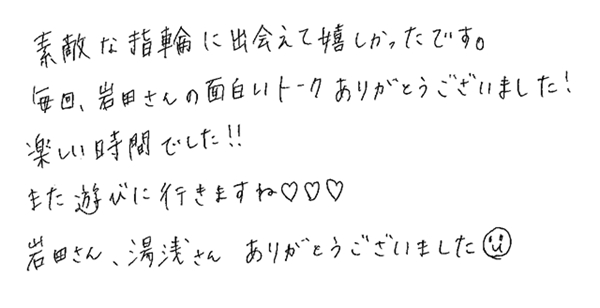 素敵な指輪に出会えて嬉しかったです。
毎回、岩田さんの面白いトークありがとうございました!
楽しい時間でした!!
また遊びに行きますね♡♡♡
岩田さん、湯浅さん ありがとうございました☺